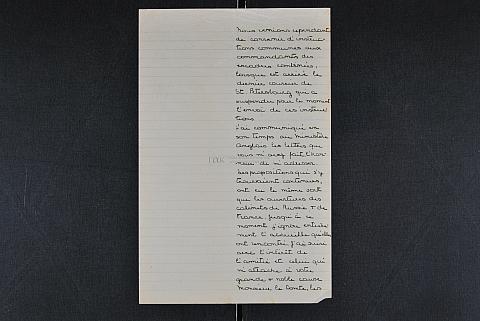 Nous venions cependant
de convenir d'instruc-
tions communes aux
commandants des
escadres combinées,
lorsque est arrivé le
dernier courrier de
St. Pétersbourg qui a
suspendu pour le moment
l'envoi de ces instruc-
tions.
J'ai communiqué en
son temps au Ministère
Anglais les lettres que
vous m'avez fait l'hon-
neur de m'adresser.
Les propositions qui s'y
trouvaient contenues,
ont eu le même sort
que les ouvertures des
cabinets de Russie & de
France. Jusqu'à ce
moment j'ignore entière-
ment l'accueil qu'elles
ont rencontré. J'ai suivi
avec l'intérêt de
l'amitié et celui qui
m'attache à votre
grande & noble cause
Monsieur le Comte, les